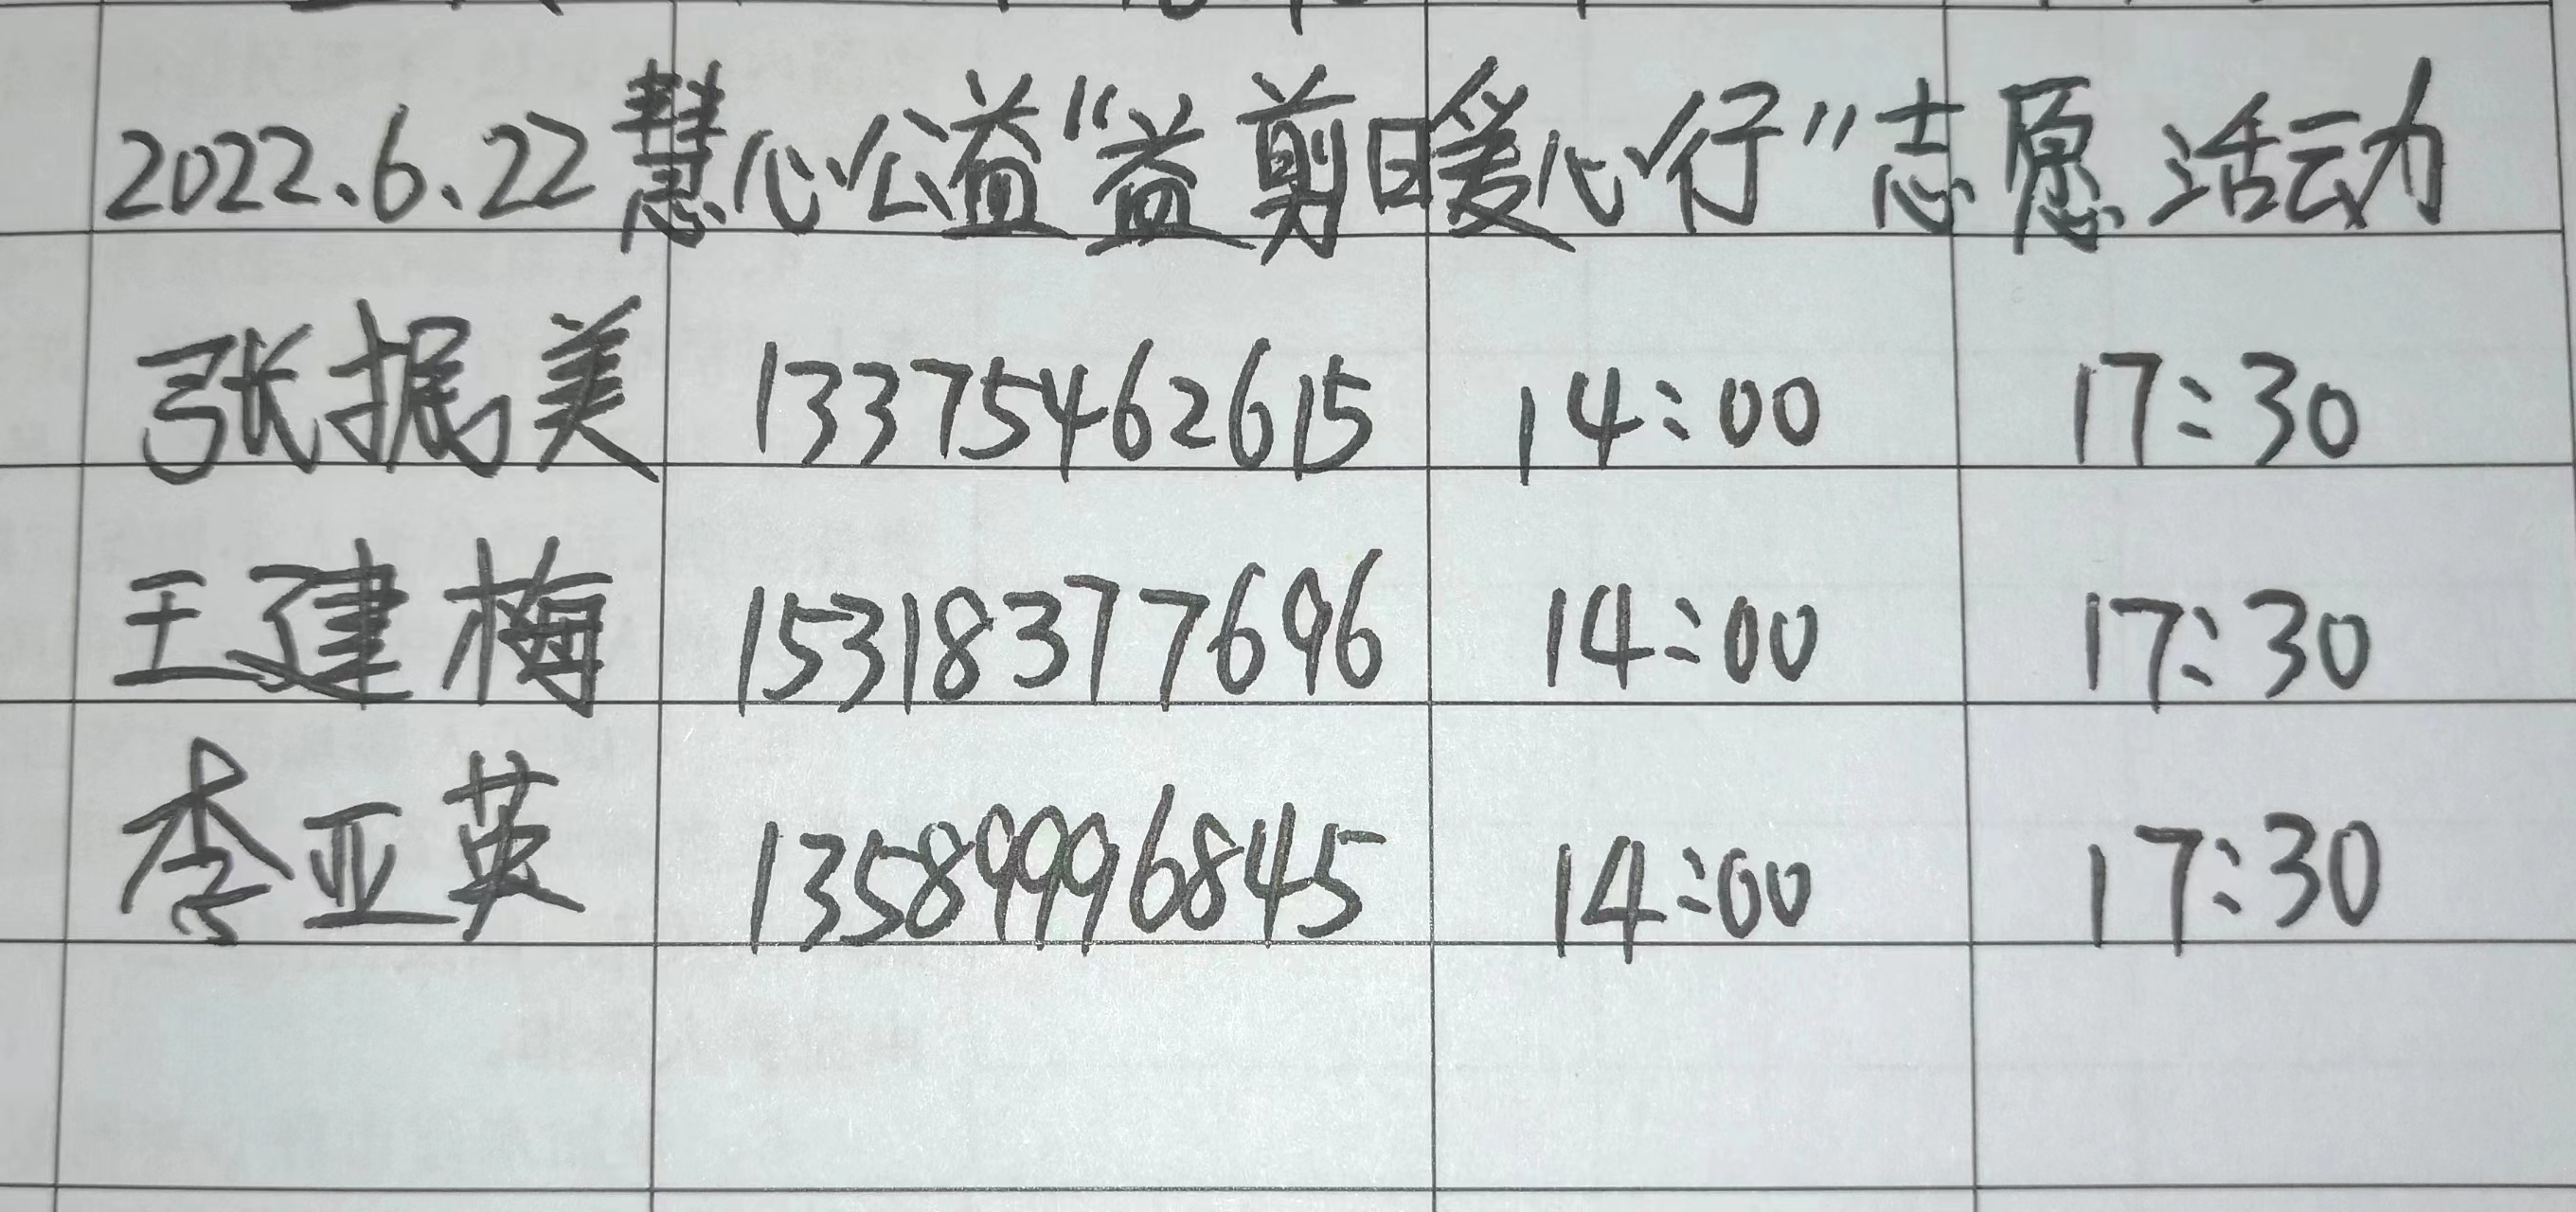 2022.6.22慧心公益“益剪暖心行”志愿活动
张振美 13375462615 14:00 17:30
王建梅 15318377696 14:00 17:30
李亚英 13589996845 14:00 17:30